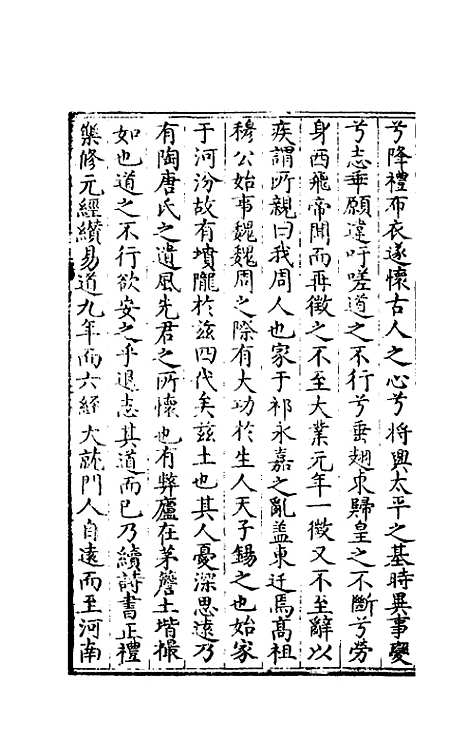 兮降禮布衣遂懷古人之心兮將興太平之基時異事變
兮志乖願違吁嗟道之不行兮垂翅東歸皇之不斷兮勞
身西飛帝聞而再徵之不至大業元年一徵又不至辭以
疾謂所親曰我周人也家于祁永嘉之亂蓋東迁焉高祖
穆公始事魏魏周之際有大功於生人天子錫之也始家
于河汾故有墳隴於茲四代矣茲土也其人憂深思遠乃
有陶唐氏之遺風先君之所懷也有弊廬在茅簷土堦撮
如也道之不行欲安之乎退志其道而已乃續詩書正禮
樂修元經讚易道九年而六經大就門人自遠而至河南